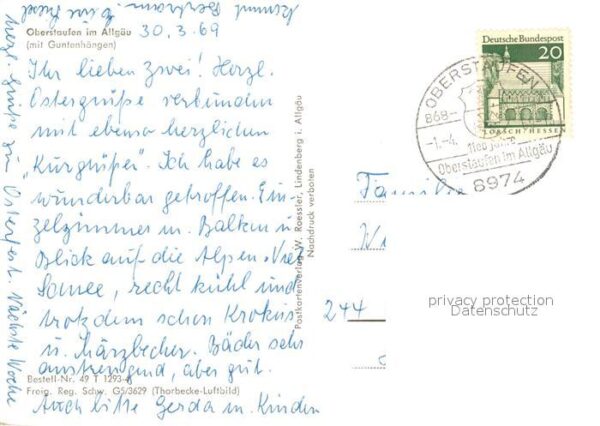 Oberstaufen im Allgäu
(mit Guntenhängen)
30.3.69
Ihr lieben zwei! Herzl.
Ostergrüße verbunden
mit ebenso herzlichen
"Kurgrüßen". Ich habe es
wunderbar getroffen. Ein-
zelzimmer m. Balkon u.
Blick auf die Alpen. Viel
Schnee, recht kühl und
trotzdem schon Krokus
u. Märzbecher. Bäder sehr
anstrengend, aber gut.
Auch bitte Gerda m. Kindern
herzl. Grüße zum Osterfest. Nächste Woche
kommt
Bestell-Nr. 49 T 1293
Freig. Reg. Schw. G5/3629 (Thorbecke-Luftbild)
Postkartenverlag W. Roessler, Lindenberg i. Allgäu
Nachdruck verboten
Deutsche Bundespost
20
LORSCH·HESSEN
OBERSTAUFEN
868-
-1.-4.
1100 Jahre
Oberstaufen im Allgäu
8974
Familie
W
244
privacy protection
Datenschutz